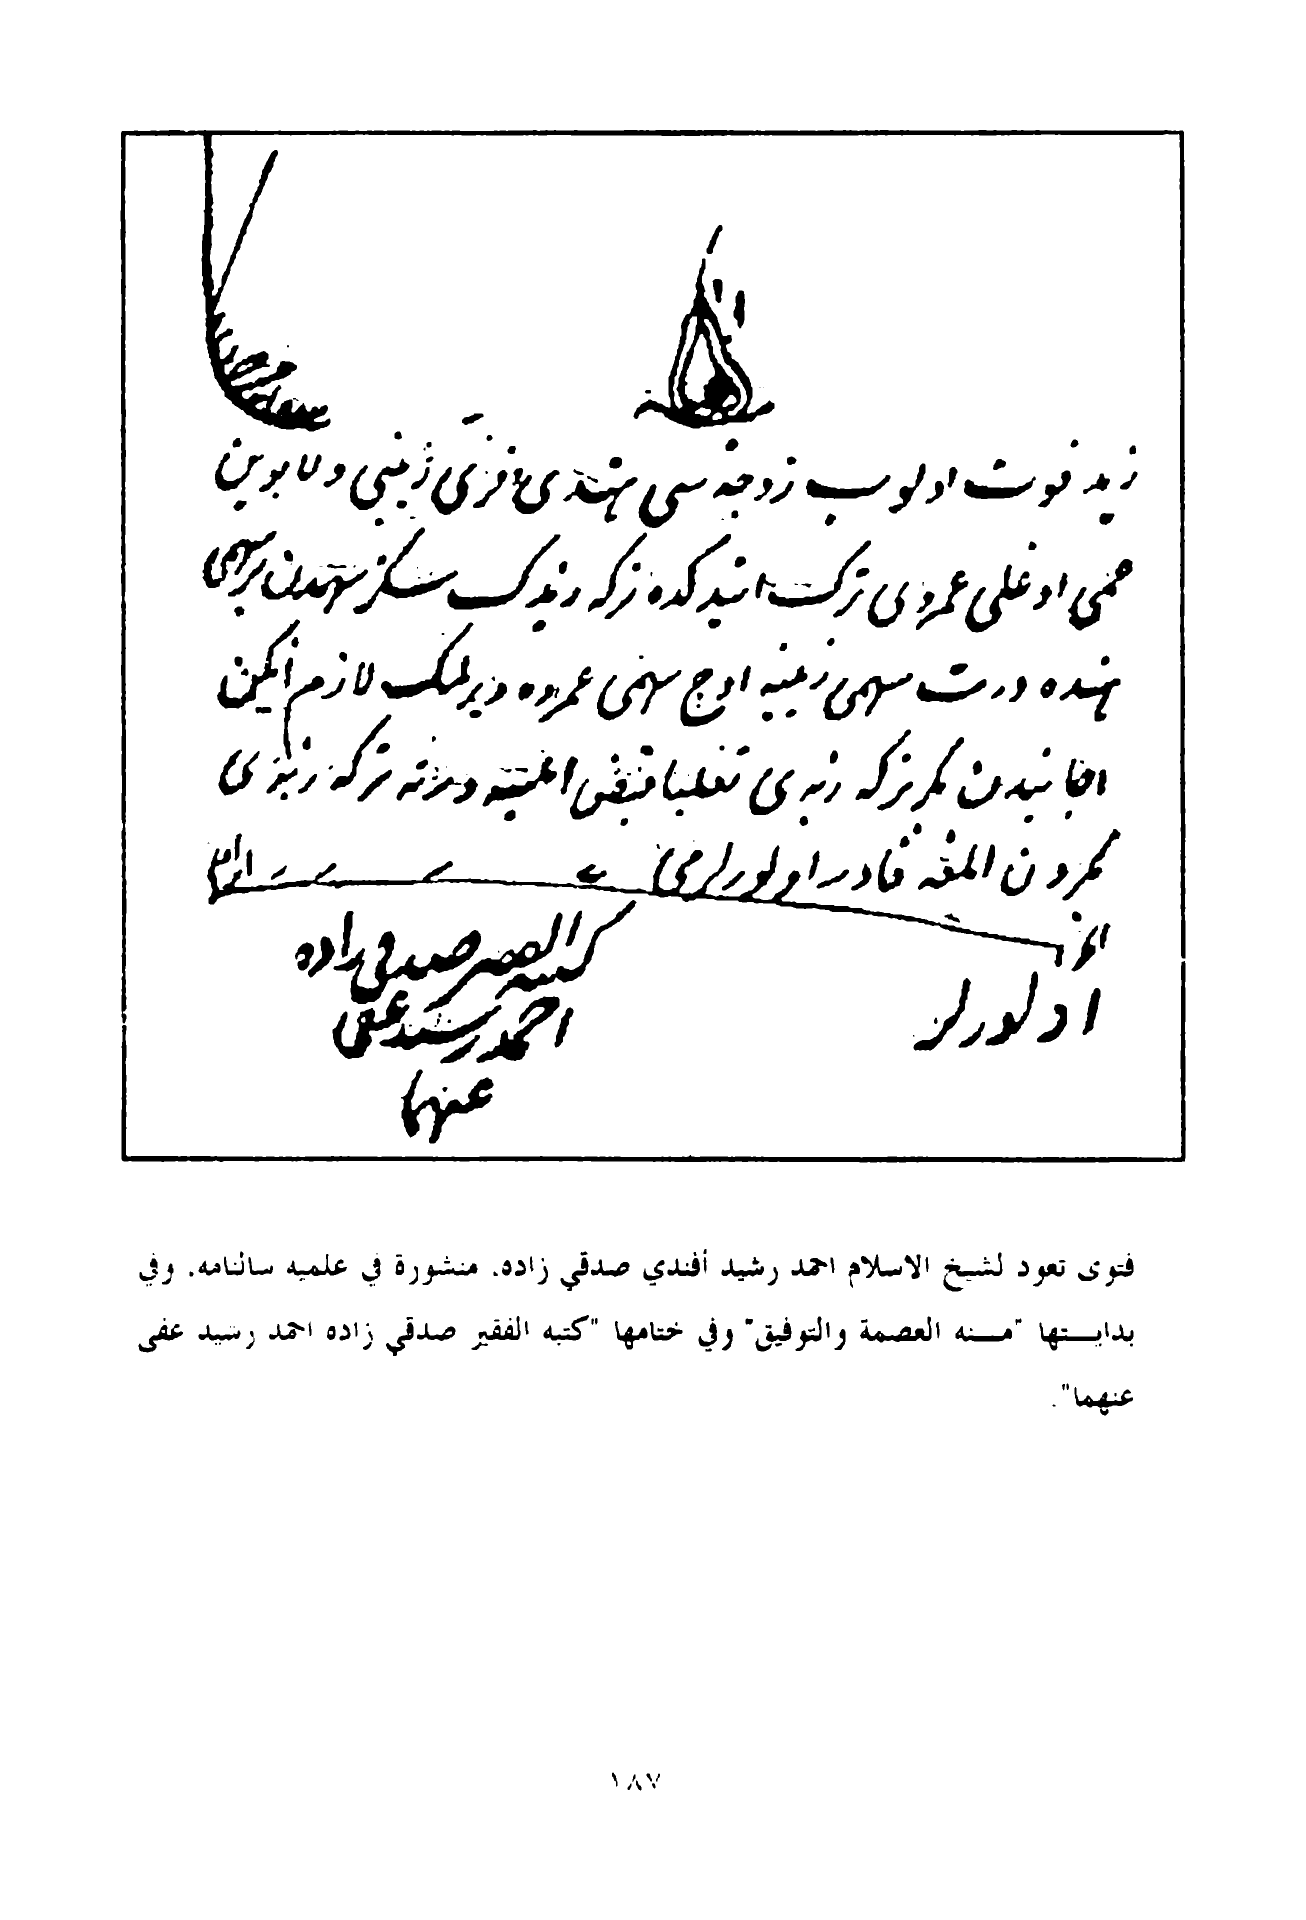 زيد فوت اولوب زوجه سى هندى و قزى زينبى و لابوين
عمى اوغلى عمروى ترك ايتدكده تركه زيدك سكز سهمدن بر سهمى
هنده درت سهمى زينبه اوچ سهمى عمروه ويرلمك لازم ايكن
تركه زيدى تغلبا قبض ورثه تركه زيدى
بكردن المغه قادر اولورلرمى
الجواب
اولورلر
كتبه الفقير صدقي زاده
احمد رشيد عفى
عنهما
فتوى تعود لشيخ الاسلام احمد رشيد أفندي صدقي زاده. منشورة في علميه سالنامه. وفي
بدايـــتها "مـــنه العصمة والتوفيق" وفي ختامها "كتبه الفقير صدقي زاده احمد رشيد عفى
عنهما".
١٨٧